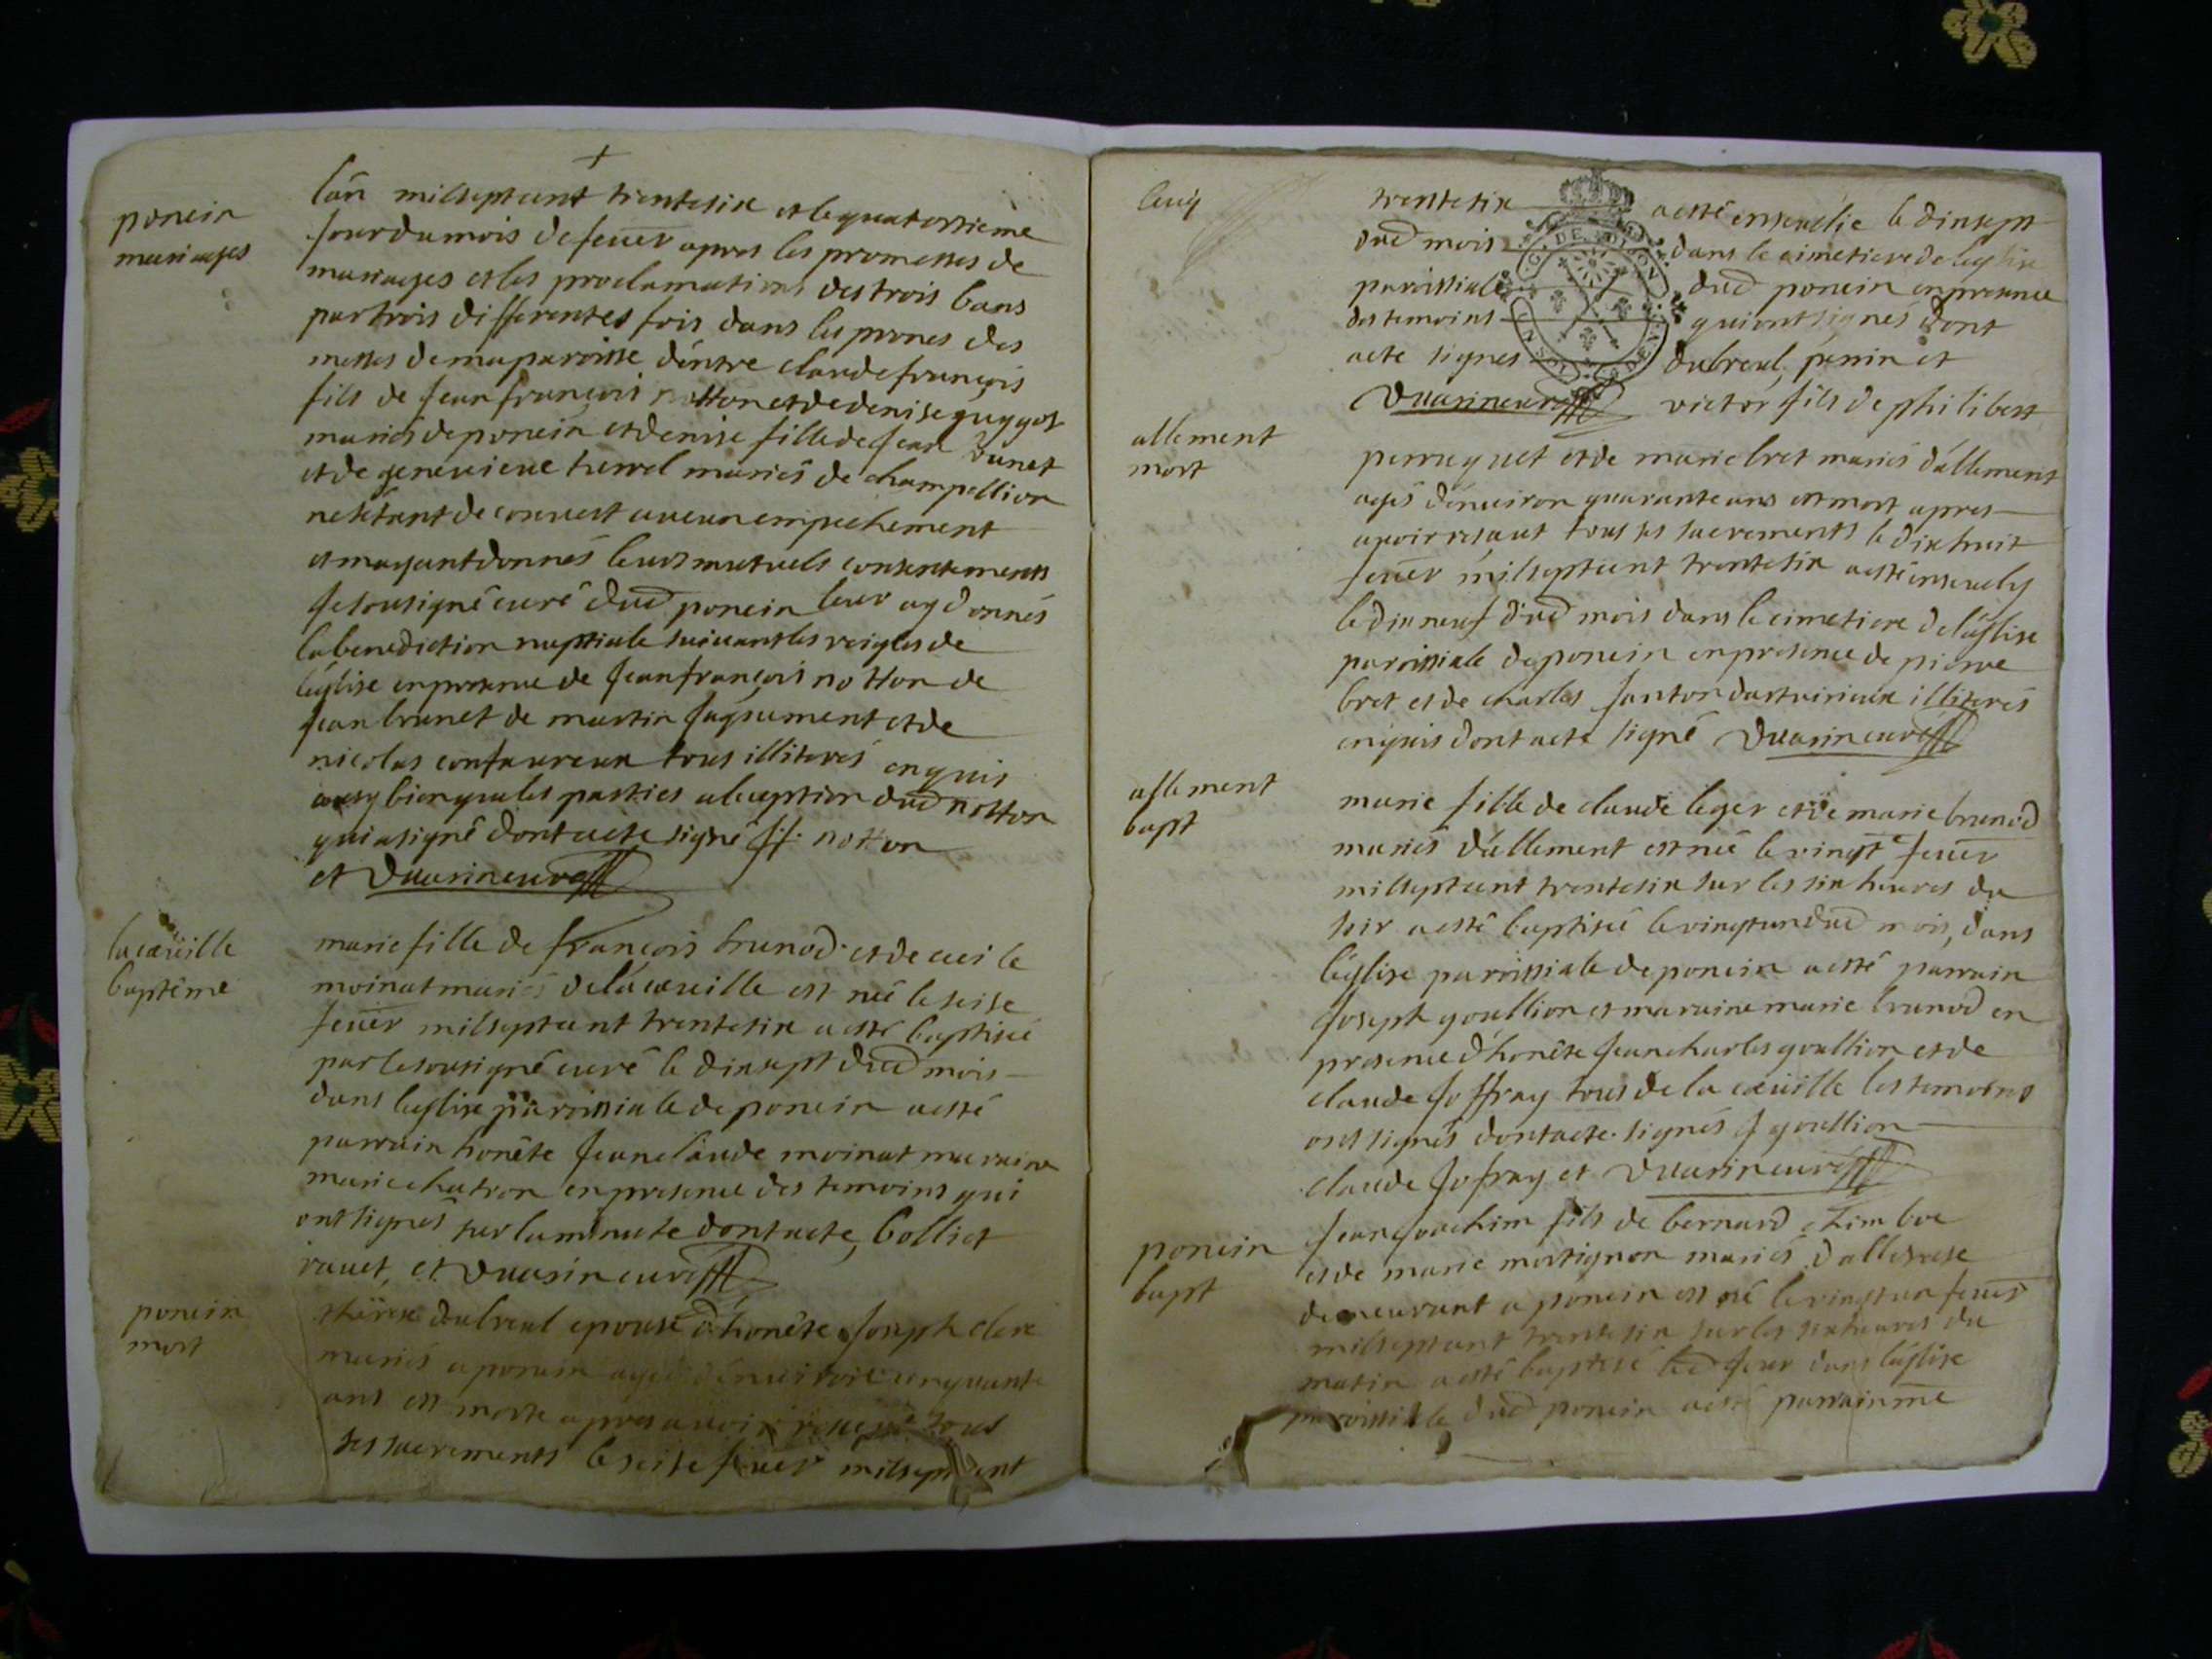 poncin
mariages
lan milseptcent trentesix et le quatorzieme
jour du mois de feuer apres les promesses de
mariages et les proclamations des trois bans
par trois differentes fois dans les prones des
messes de ma paroisse d'entre claude françois
fils de jean françois notton et de denise guygot
mariés de poncin et denise fille de jean brunet
et de genevieve mariés de champollion
aucun empechement
et mayant donnés leurs mutuels consentements
je sousigné curé dud poncin leur ay donnés
la benediction nuptiale suivant les reigles de
léglise en presence de jean françois notton de
jean brunet de martin et de
nicolas tous illiterés enquis
aussy bien que les parties a lexeption dud notton
qui a signé dont acte signé J f notton
et Duarin curé
la cœüille
baptême
marie fille de françois brunod et de
moinat mariés de la cœuille est née le seise
feuer milseptcent trentesix a esté baptisée
par le sousigné curé le dixsept dud mois
dans leglise paroissiale de poncin a esté
parrain honête jean claude moinat maraine
marie chatron en presence des temoins qui
ont signés sur la minute dont acte, bolliet
ravet, et Duarin curé
poncin
mort
therese dubreul epouse d'honête joseph clerc
mariés a poncin agée d'environ cinquante
ans est morte apres avoir tous
ses sacrements le seise feuer milseptcent
trentesix a esté ensevelie le dixsept
dud mois dans le cimetiere de leglise
paroissiale dud poncin en presence
des temoins qui ont signés dont
acte signés dubreul, et
Duarin curé
G. DE DIJON
allement
mort
victor fils de philibert
perruquet et de marie bret mariés d'allement
agés d'environ quarante ans est mort apres
avoir tous ses sacrements le dixhuit
feuer milseptcent trentesix a esté ensevely
le dixneuf dud mois dans le cimetiere de léglise
paroissiale de poncin en presence de pierre
bret et de charles janton illiterés
enquis dont acte signé Duarin curé
allement
bapt
marie fille de claude leger et de marie brunod
mariés d'allement est née le vingt feuer
milseptcent trentesix sur les six heures du
soir a esté baptisée le vingtun dud mois, dans
léglise paroissiale de poncin a esté parrain
joseph goullion et maraine marie brunod en
presence d'honête jean charles goullion et de
claude joffray tous de la cœüille les temoins
ont signés dont acte signés J goullion
claude jofray et Duarin curé
poncin
bapt
jean joachim fils de bernard
et de marie mortignon mariés
demeurant a poncin est né le vingtun feuer
milseptcent trentesix sur les six heures du
matin a esté baptisé led jour dans léglise
paroissiale dud poncin a esté parrain